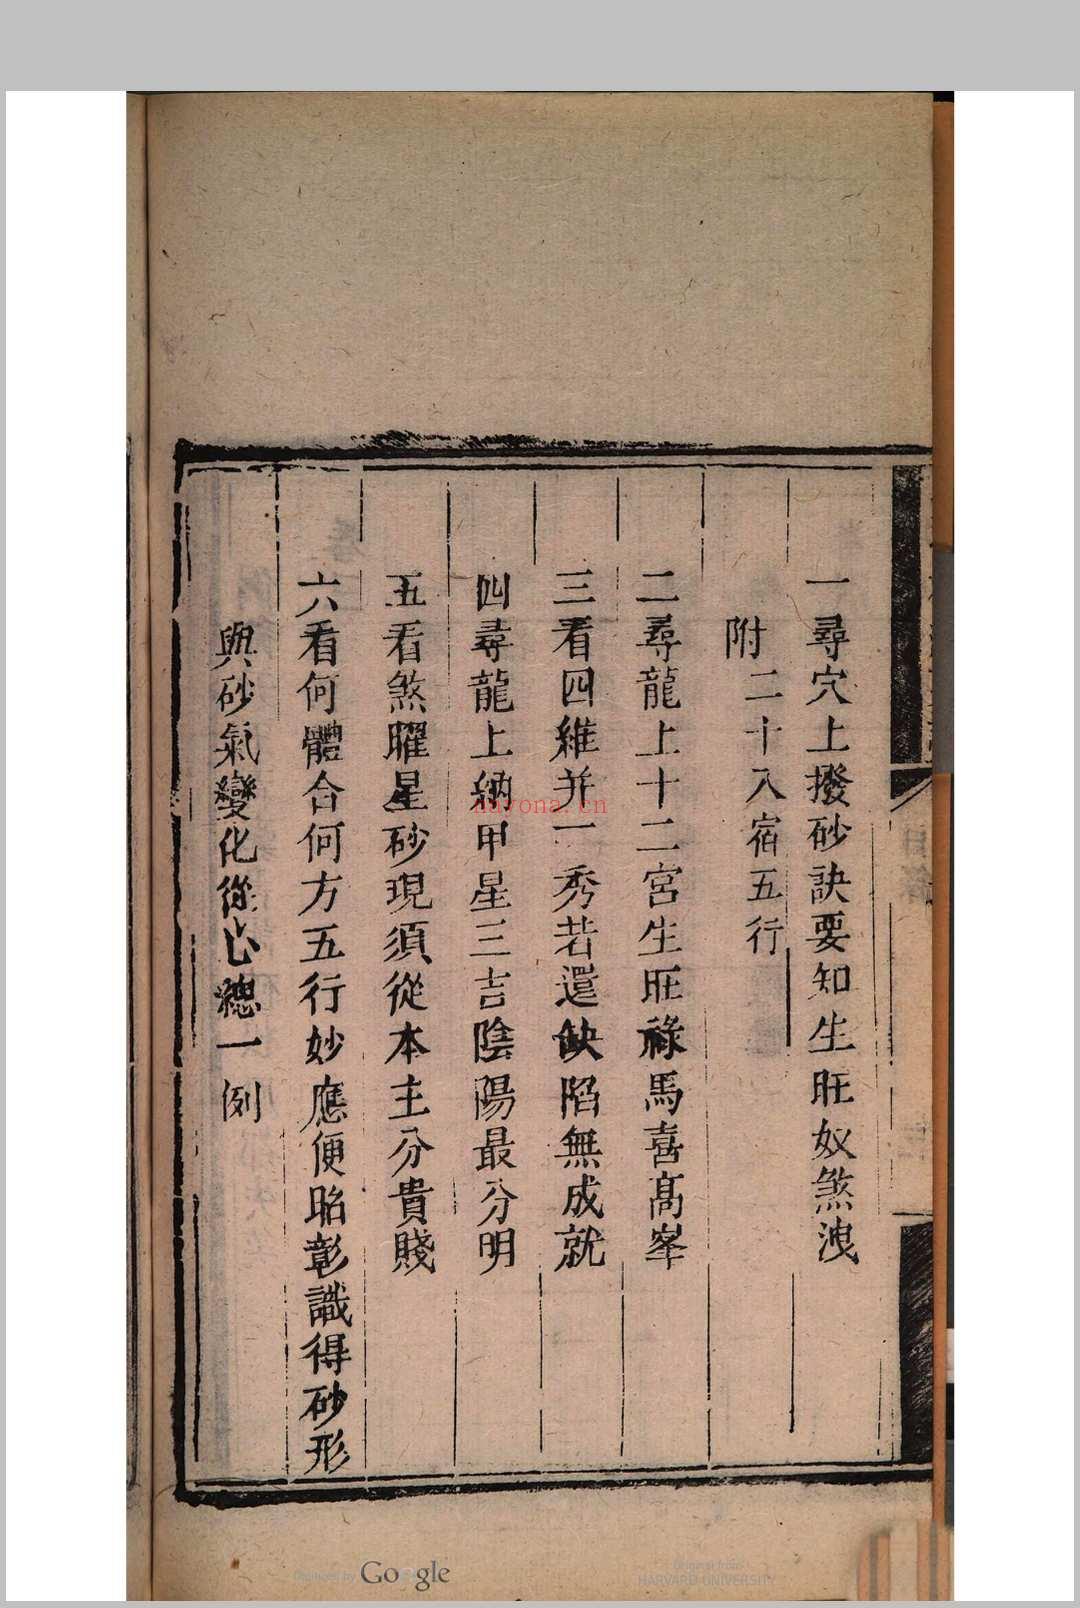 一尋穴上撥砂訣要知生旺奴煞洩
附二十八宿五行
二尋龍上十二宮生旺祿馬喜高峯
三看四維并一秀若還缺陷無成就
四尋龍上納甲星三吉陰陽最分明
五看煞曜星砂現須從本主分貴賤
六看何體合何方五行妙應便昭彰識得砂形
與砂氣變化從心總一例
nayona.cn
Digitized by Google
Original from
HARVARD UNIVERSITY